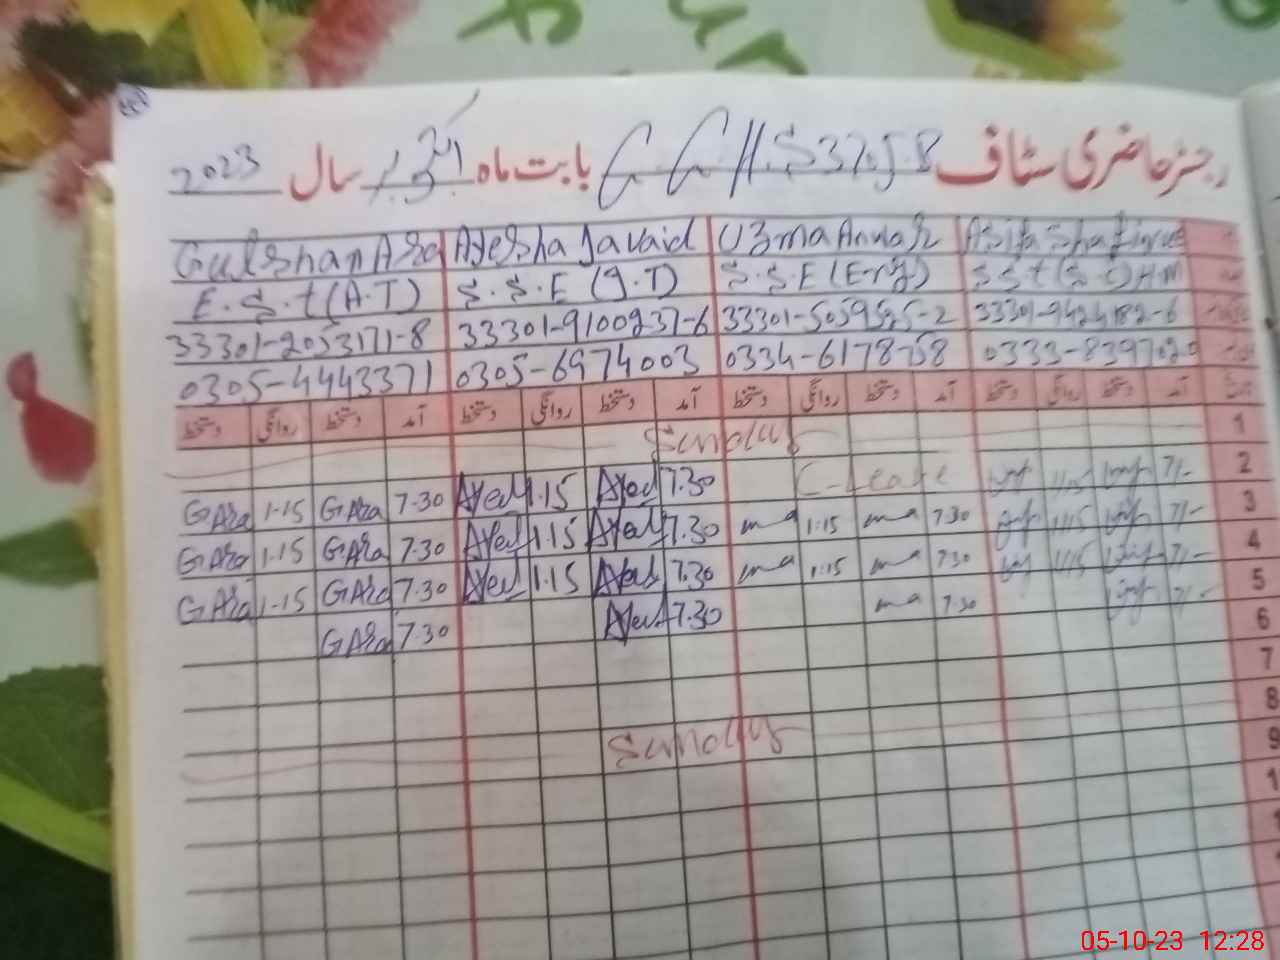 رجسٹر حاضری سٹاف GGHS 375.8 بابت ماہ اکتوبر سال 2023
Gulshan Ara Ayesha Javaid Uzma Anwar Asifa
E.S.t (A.T) S.S.E (I.T) S.S.E (Eng) S S t (Sc) H.M
33301-2053171-8 33301-9100237-6 33301-5059525-2 33301-9424182-6
0305-4443371 0305-6974003 0334-6178758 0333-8397020
دستخط روانگی دستخط آمد دستخط روانگی دستخط آمد دستخط روانگی دستخط آمد دستخط روانگی دستخط آمد تاریخ
Sunday 1
GAra 1-15 GAra 7.30 Ayesh 1.15 Ayesh 7.30 C-leave 1:15 7/- 2
GAra 1-15 GAra 7.30 Ayesh 1.15 Ayesh 7.30 ma 1:15 ma 7.30 1:15 7/- 3
GAra 1-15 GAra 7.30 Ayesh 1.15 Ayesh 7.30 ma 1:15 ma 7.30 1:15 7/- 4
GAra 7.30 Ayesh 7.30 ma 7.30 7/- 5
6
7
Sunday 8
9
05-10-23 12:28